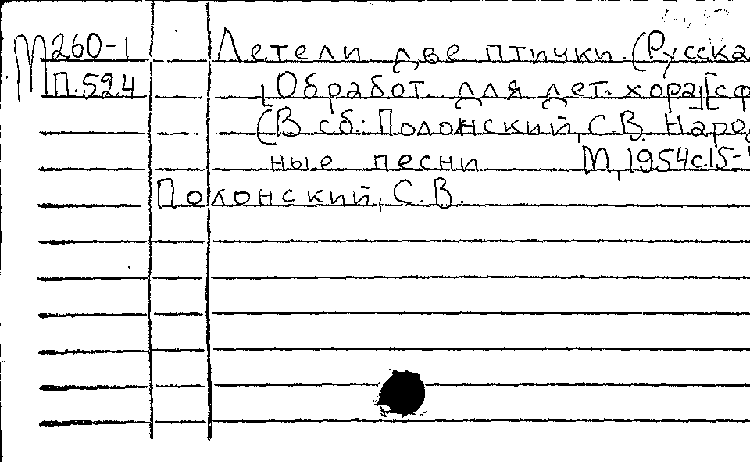 М 260-1 Летели две птички. (Русска
П.524 Обработ. для дет. хора [сф
(В сб: Полонский, С.В. Народ
ные песни М, 1954 с.15-
Полонский, С.В.